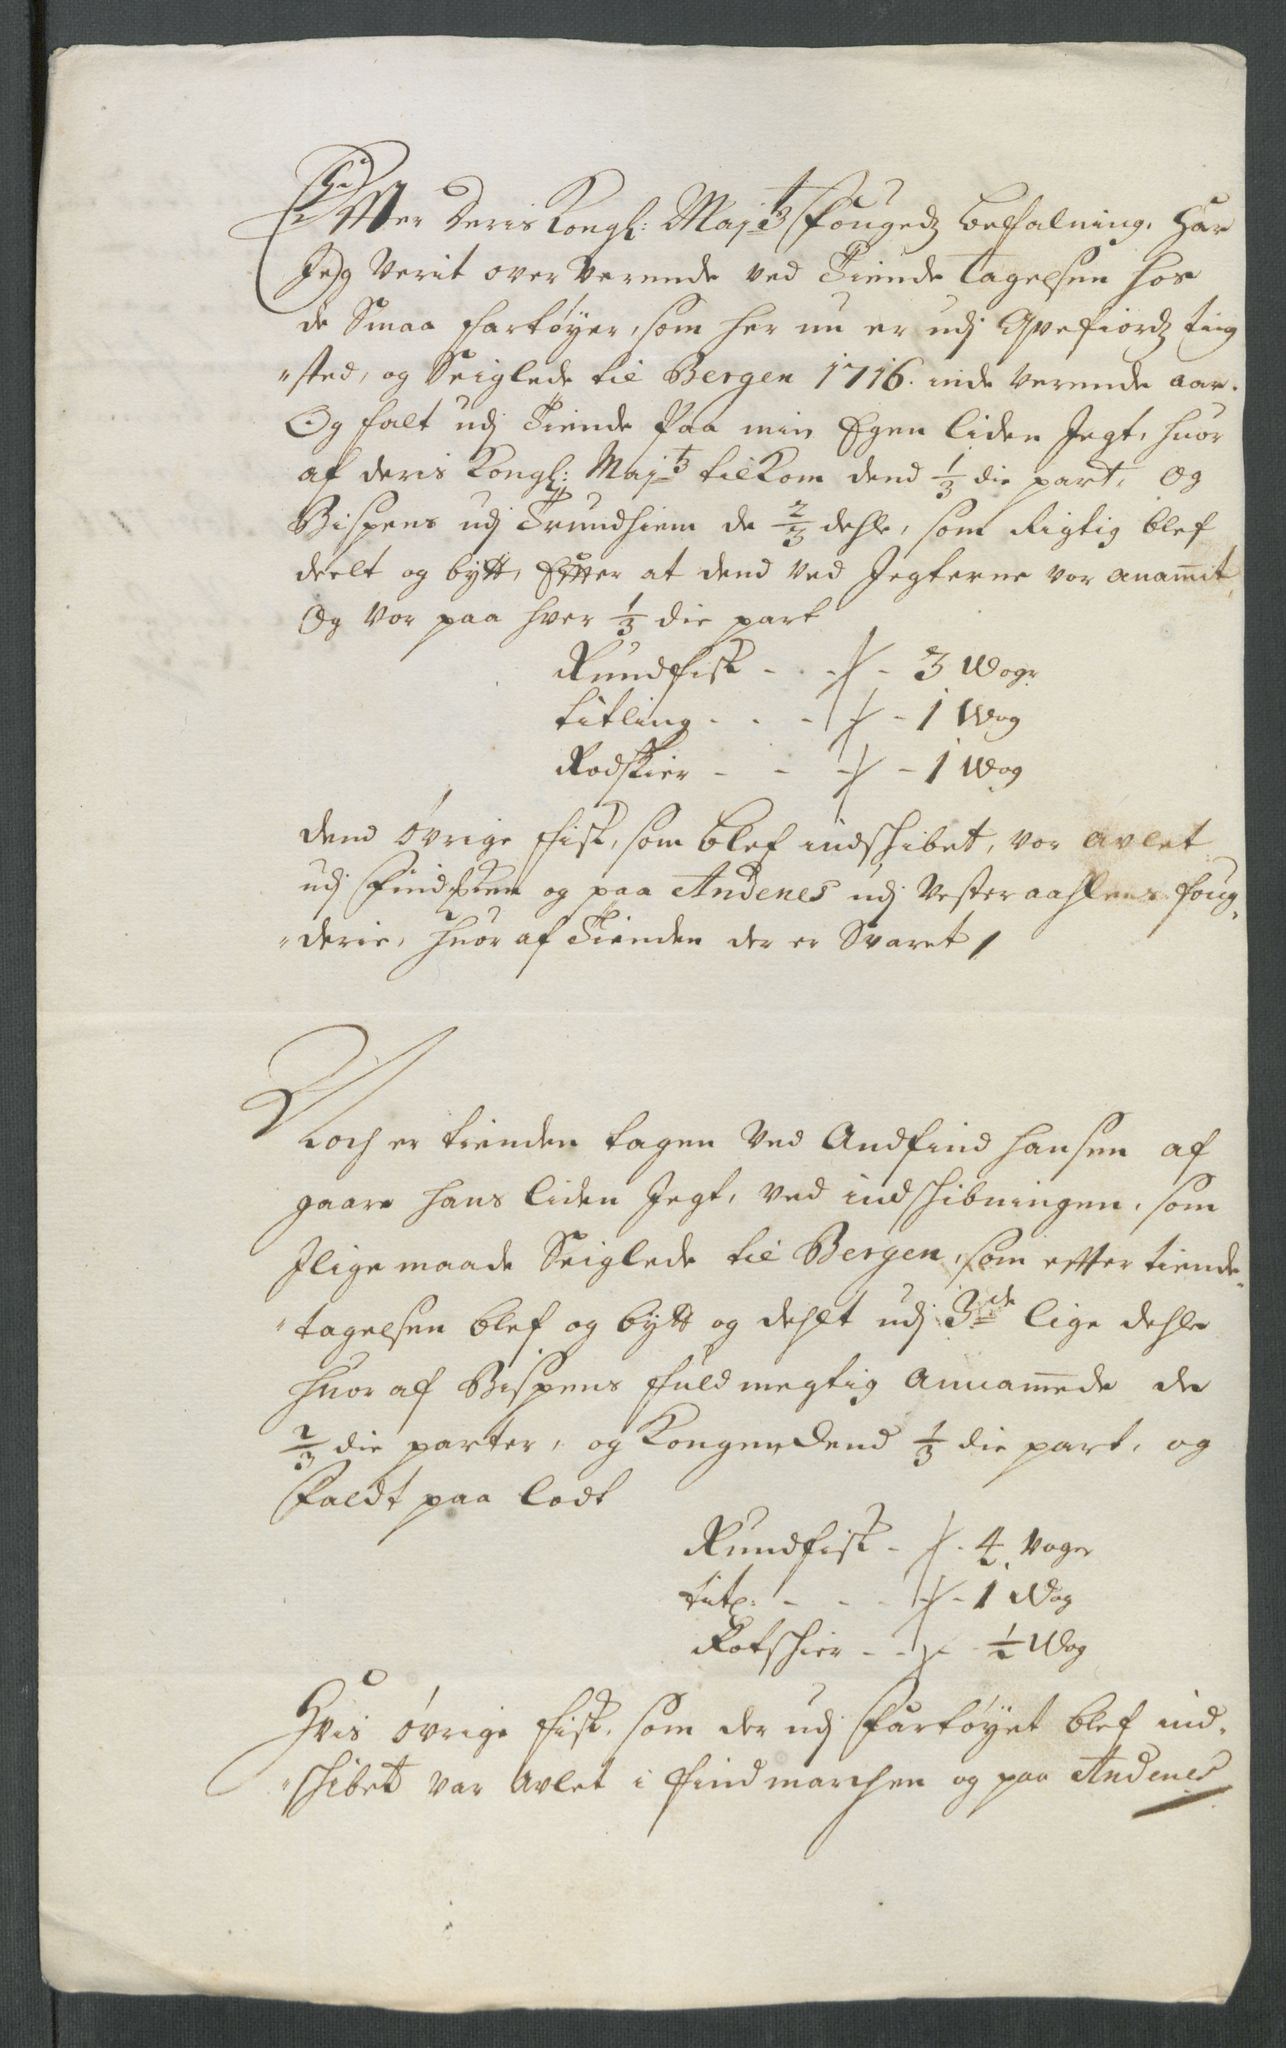 Effter Deris Kongl: Maj:ts Fougedz befalning, Har
Jeg Verit over Verende ved Tiende tagelsen hos
de Smaa fartøyer, som her nu er udj Qvefiordz ting
"sted, og Seiglede til Bergen 1716. inde Verende aar.
Og falt udj Tiende Paa min Egen liden Jegt, huor
af deris Kongl: Maj:ts tilkom dend 1/3 die part, og
Bispens udj Trundhiem de 2/3 dehle, som Rigtig blef
deelt og bytt, Effter at dend ved Jegterne vor anam̄it,
Og vor paa hver 1/3 die part
Rundfisk - . - - 3 Woger
titling - . - - 1 Wog
Rodskier - - - - 1 Wog
dend øvrige fisk, som blef indschibet, vor avlet
udj og paa Andenes udj Vesteraahlens foug-
"derie, huor af Tienden der er Svaret /
Noch er tienden tagen ved Andfind Hansen af
gaare hans liden Jegt, ved indschibningen, som
Jlige maade Seiglede til Bergen, som effter tiende-
"tagelsen blef og bytt og dehlt udj 3de lige dehle
huor af Bispens fuldmegtig annam̄ede de
2/3 die parter, og Kongen dend 1/3 die part, og
Faldt paa lodt
Rundfisk - - 4 Voger
titl: - - - - 1 Wog
Rotschier - - - 1/2 Wog
Hvis øvrige fisk, som der udj fartøyet blef ind-
"schibet var avlet i findmarchen og paa Andenes